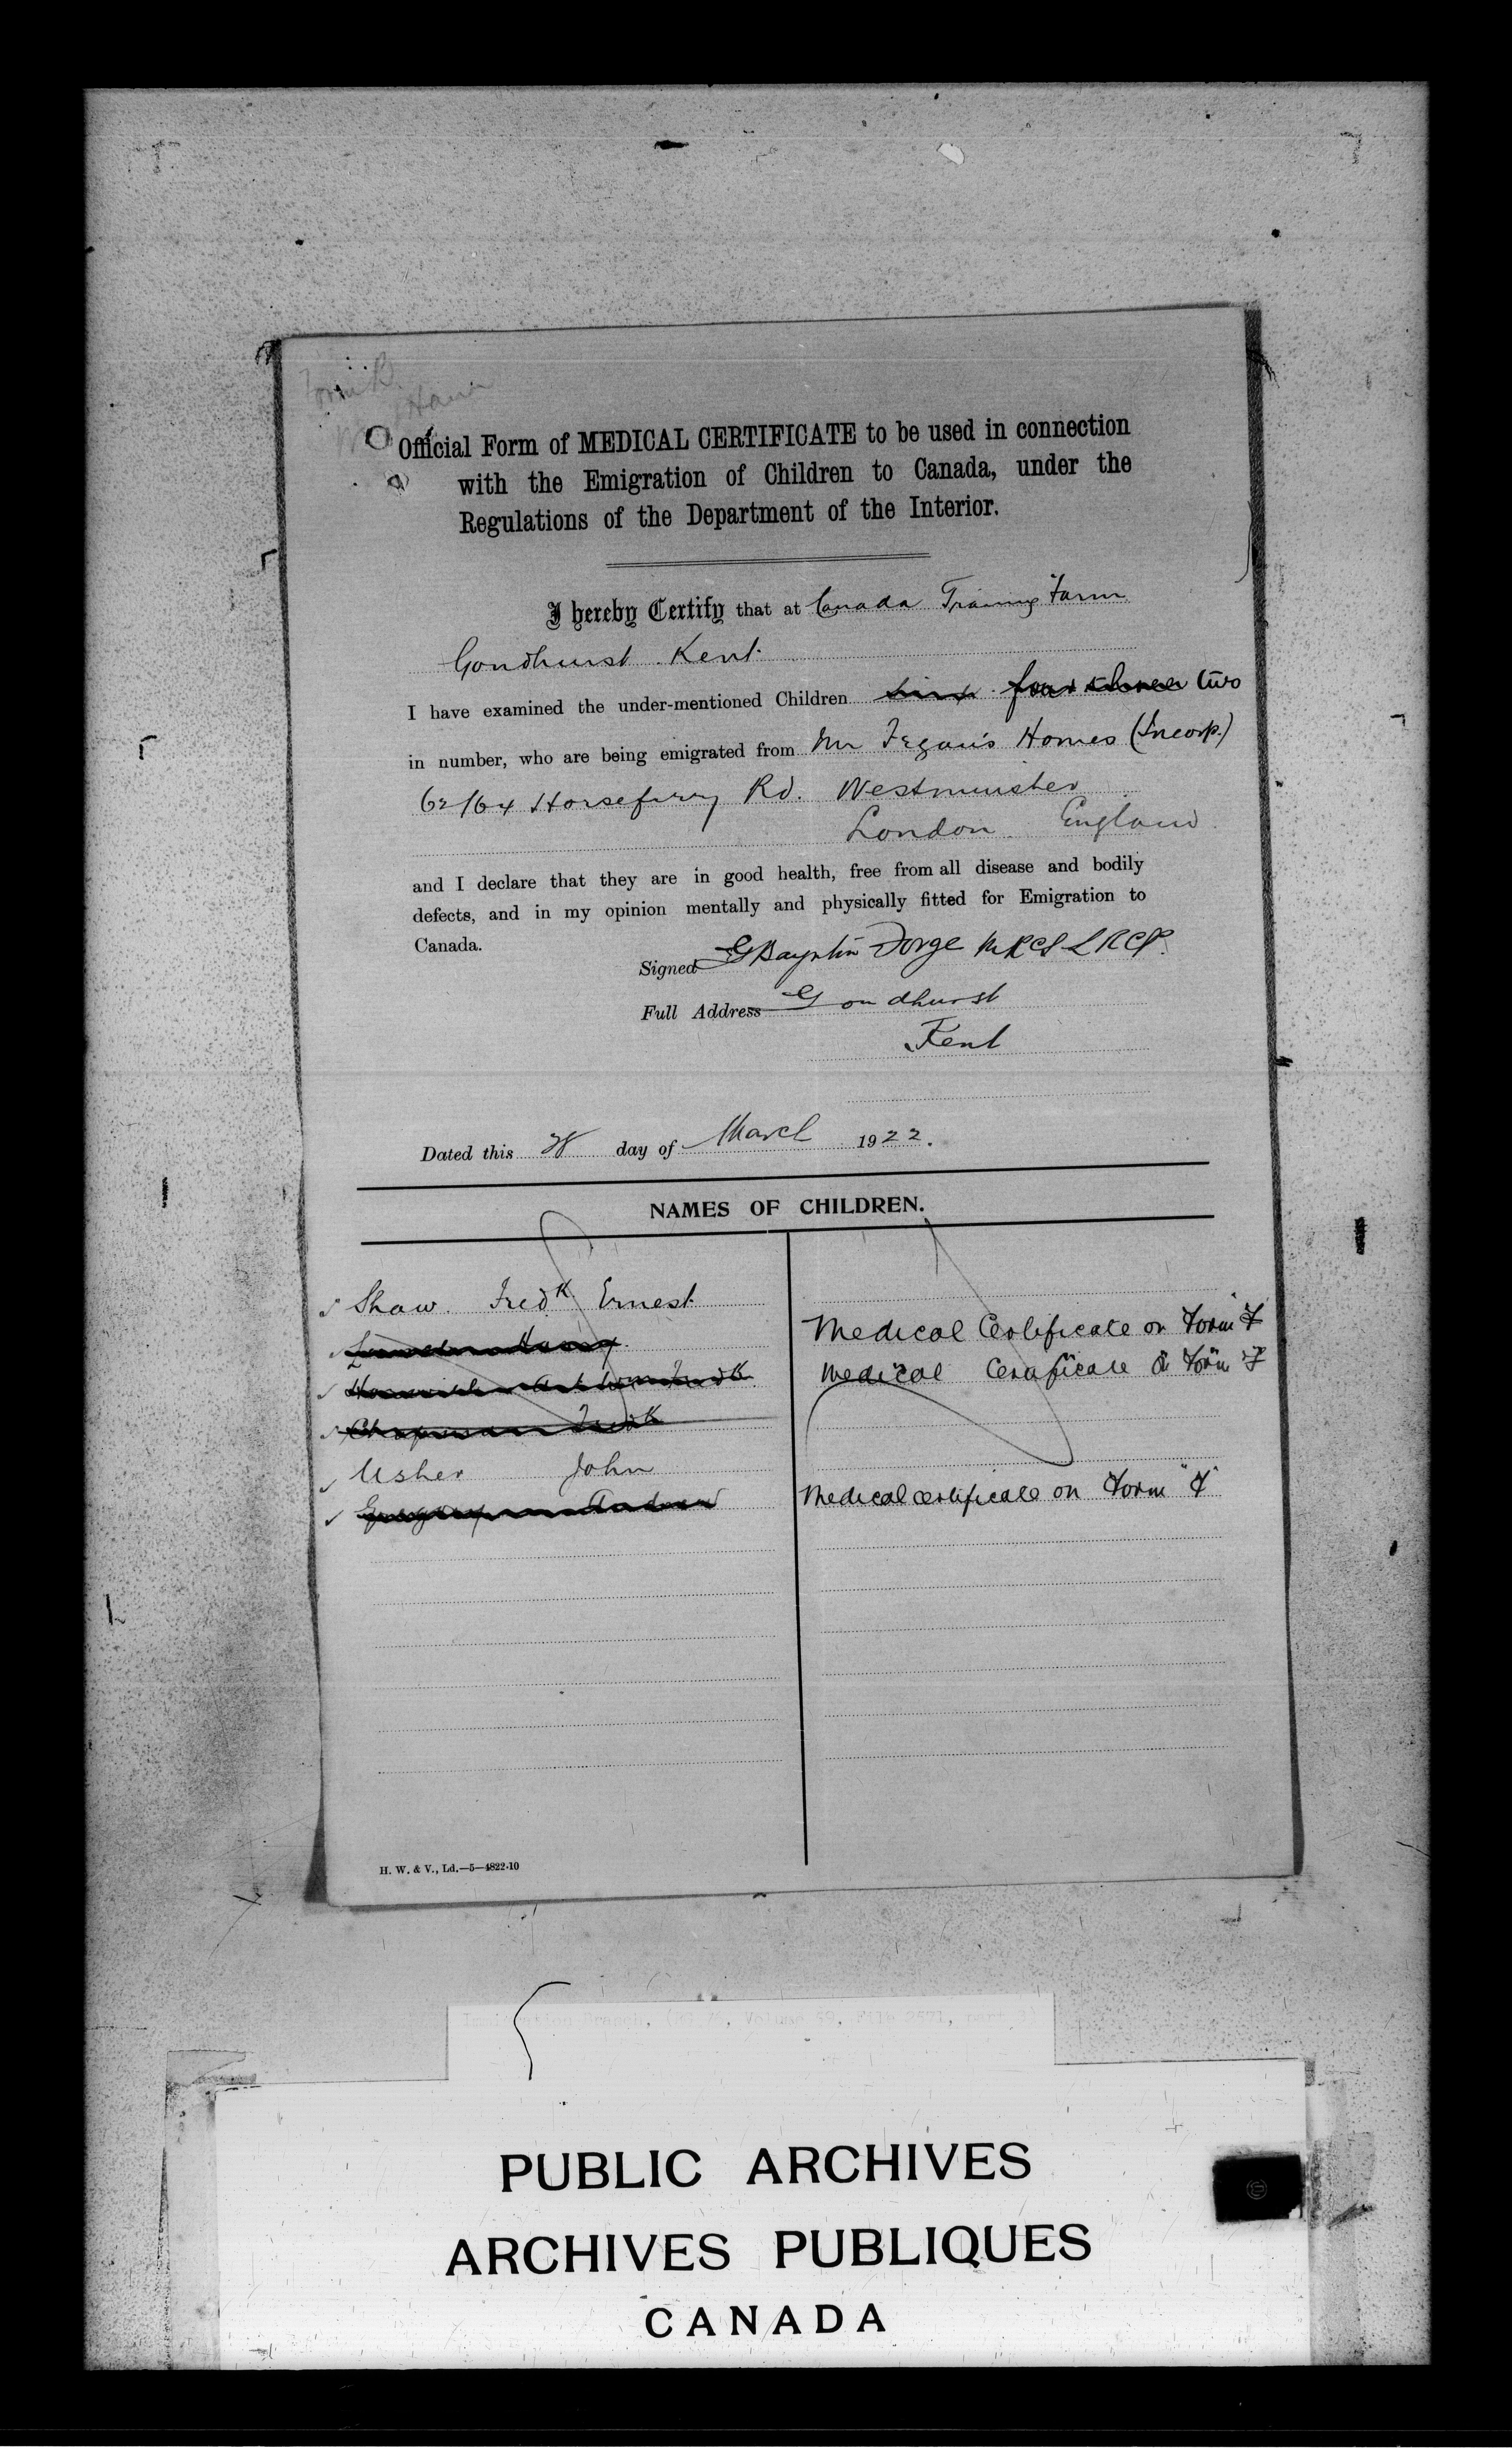 Form B.
Official Form of MEDICAL CERTIFICATE to be used in connection
with the Emigration of Children to Canada, under the
Regulations of the Department of the Interior.
I hereby Certify that at Canada Training Farm
Goudhurst Kent.
I have examined the under-mentioned Children four three two
in number, who are being emigrated from Mr Fegan's Homes (Incorp.)
62/64 Horseferry Rd. Westminster
London England
and I declare that they are in good health, free from all disease and bodily
defects, and in my opinion mentally and physically fitted for Emigration to
Canada.
Signed G Bayntin Forge MRCS LRCP.
Full Address Goudhurst
Kent
Dated this 28 day of March 1922.
NAMES OF CHILDREN.
Shaw. Fredk Ernest
Harry
Medical Certificate on Form "F
Arthur Fredk
Medical Certificate on Form "F
Chapman Fredk
Usher John
Andrew
Medical certificate on Form "F"
H. W. & V., Ld.—5—4822-10
Immigration Branch, (RG 76, Volume 69, File 2571, part 3)
PUBLIC ARCHIVES
ARCHIVES PUBLIQUES
CANADA